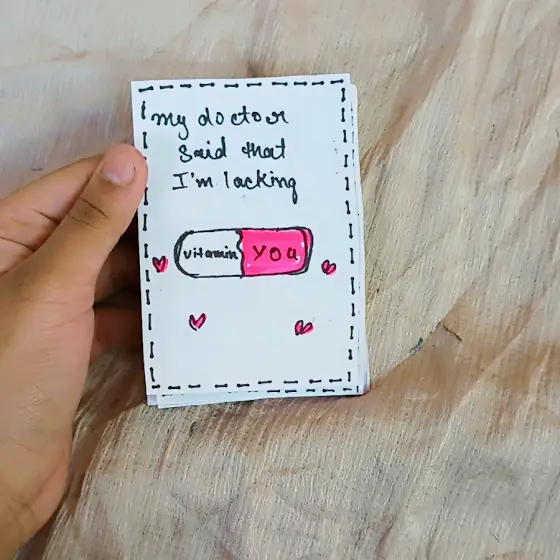 my doctor
said that
I'm lacking
vitamin YOU